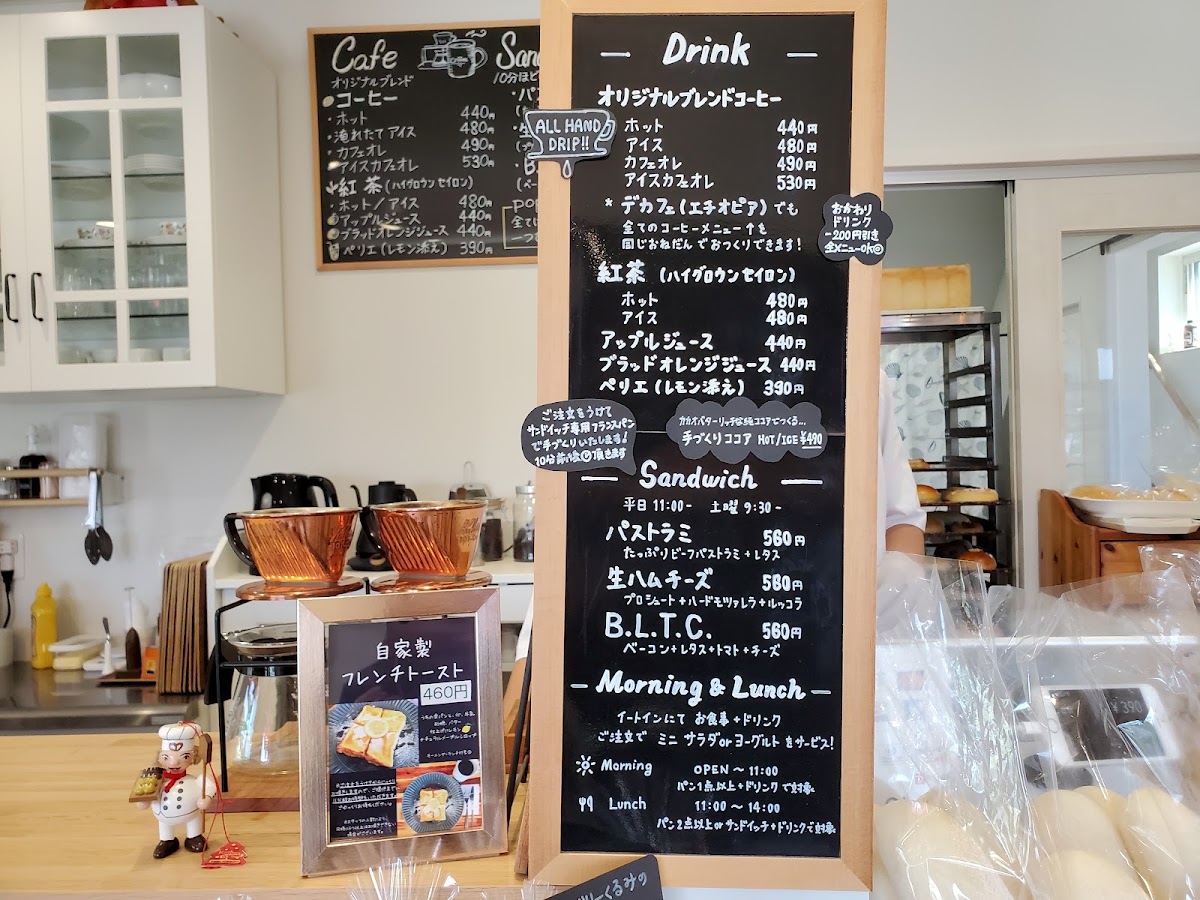 Cafe
オリジナルブレンド
コーヒー
・ホット 440円
・淹れたてアイス 480円
・カフェオレ 490円
・アイスカフェオレ 530円
紅茶(ハイグロウンセイロン)
・ホット/アイス 480円
アップルジュース 440円
ブラッドオレンジジュース 440円
ペリエ(レモン添え) 390円
San
10分ほど
ALL HAND
DRIP!!
Drink
オリジナルブレンドコーヒー
ホット 440円
アイス 480円
カフェオレ 490円
アイスカフェオレ 530円
* デカフェ(エチオピア)でも
全てのコーヒーメニュー↑を
同じおねだんでおつくりできます!
おかわり
ドリンク
-200円引き
全メニューOK◎
紅茶 (ハイグロウンセイロン)
ホット 480円
アイス 480円
アップルジュース 440円
ブラッドオレンジジュース 440円
ペリエ(レモン添え) 390円
ご注文をうけて
サンドイッチ専用フランスパン
で手づくりいたします!
10分前後頂きます
カカオバターリッチな純ココアでつくる…
手づくりココア HOT/ICE ¥490
Sandwich
平日 11:00- 土曜 9:30-
パストラミ 560円
たっぷりビーフパストラミ+レタス
生ハムチーズ 560円
プロシュート+ハードモツァレラ+ルッコラ
B.L.T.C. 560円
ベーコン+レタス+トマト+チーズ
Morning & Lunch
イートインにて お食事+ドリンク
ご注文で ミニ サラダorヨーグルト をサービス!
Morning OPEN〜11:00
パン1点以上+ドリンクで対象
Lunch 11:00〜14:00
パン2点以上orサンドイッチ+ドリンクで対象
自家製
フレンチトースト
460円
¥390
くるみの